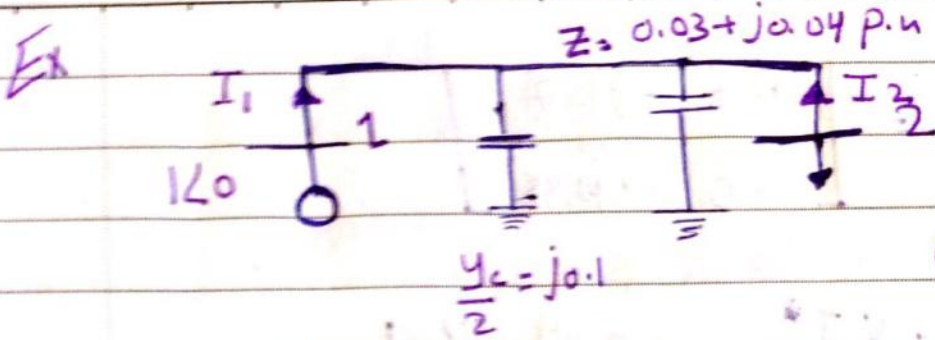 Ex
Z = 0.03 + j0.04 p.u
I₁
1
I₂
2
1∠0
yc/2 = j0.1